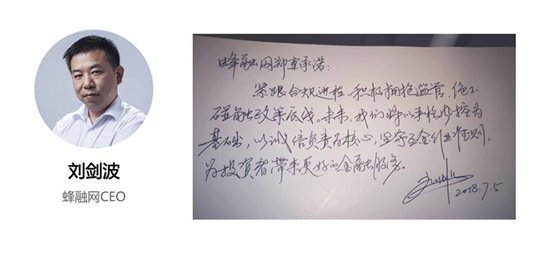 刘剑波
蜂融网CEO
蜂融网郑重承诺:
紧跟合规进程,积极拥抱监管,绝不
碰触政策底线。未来,我们将以事抢内控为
基础,以诚信负责为核心,坚守互金行业准则,
为投资者带来更好的金融服务。
2018.7.5